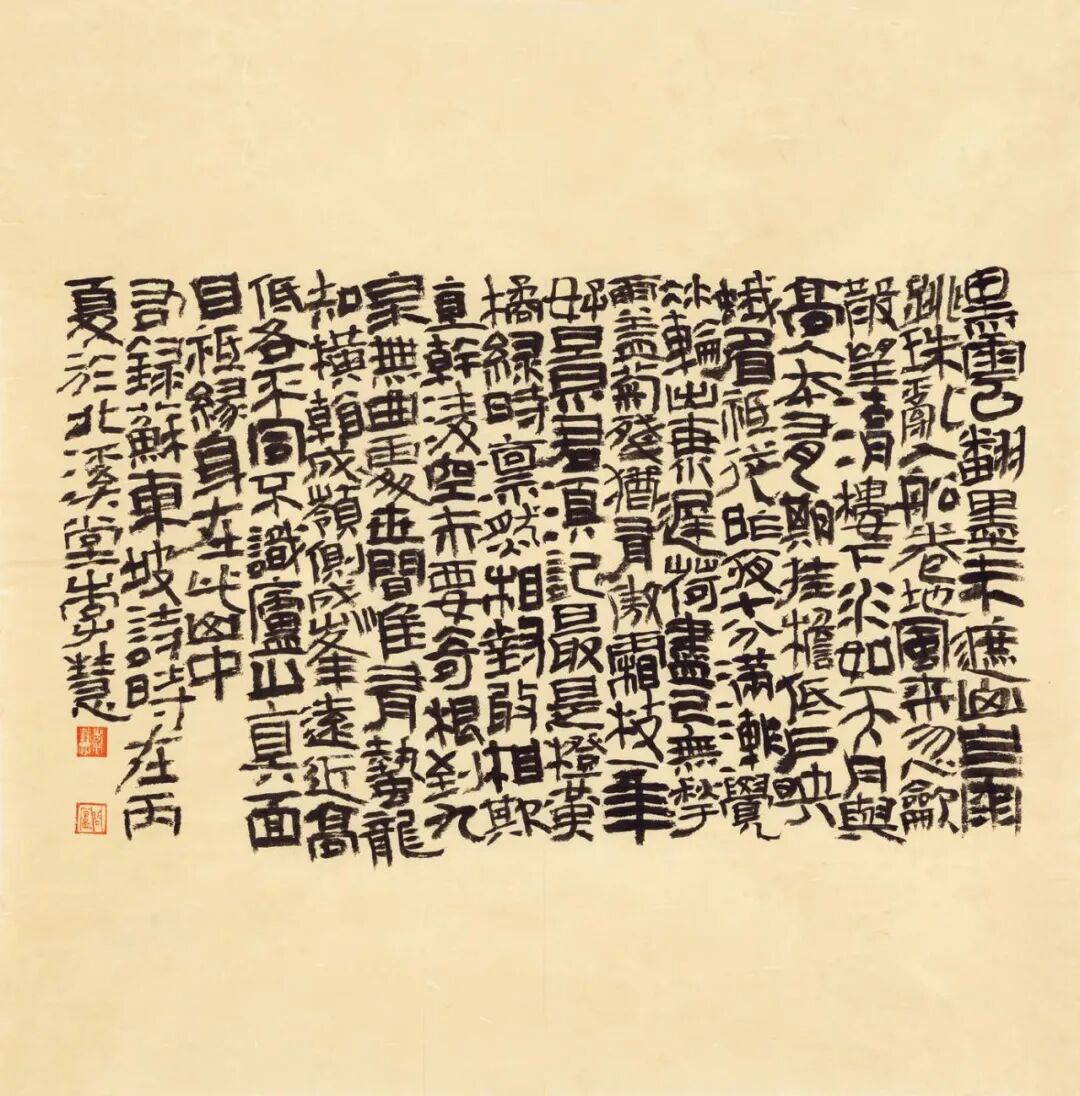 黑雲翻墨未遮山白雨
跳珠亂入船卷地風來忽龡
散望湖樓下水如天月與
高人本有期挂檐低戶映
蛾眉祗從昨夜十分滿漸覺
冰輪出東遲荷盡已無擎
雨蓋菊殘猶有傲霜枝一年
好景君須記最是橙黃
橘綠時凛然相對敢相欺
直幹凌空未要奇根到九
泉無曲處世間惟有蟄龍
知橫看成嶺側成峯遠近高
低各不同不識廬山真面
目祗緣身在此山中
右錄蘇東坡詩時在丙
夏於北溪堂慧